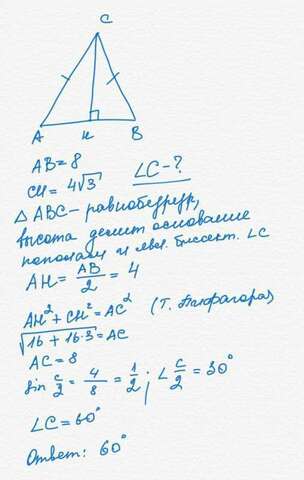 C
A H B
AB = 8
CH = 4√3
∠C - ?
△ ABC - равнобедр,
высота делит основание
пополам и явл. биссект. ∠C
AH = AB/2 = 4
AH² + CH² = AC² (т. Пифагора)
√(16 + 16·3) = AC
AC = 8
sin C/2 = 4/8 = 1/2 ; ∠ C/2 = 30°
∠C = 60°
Ответ: 60°